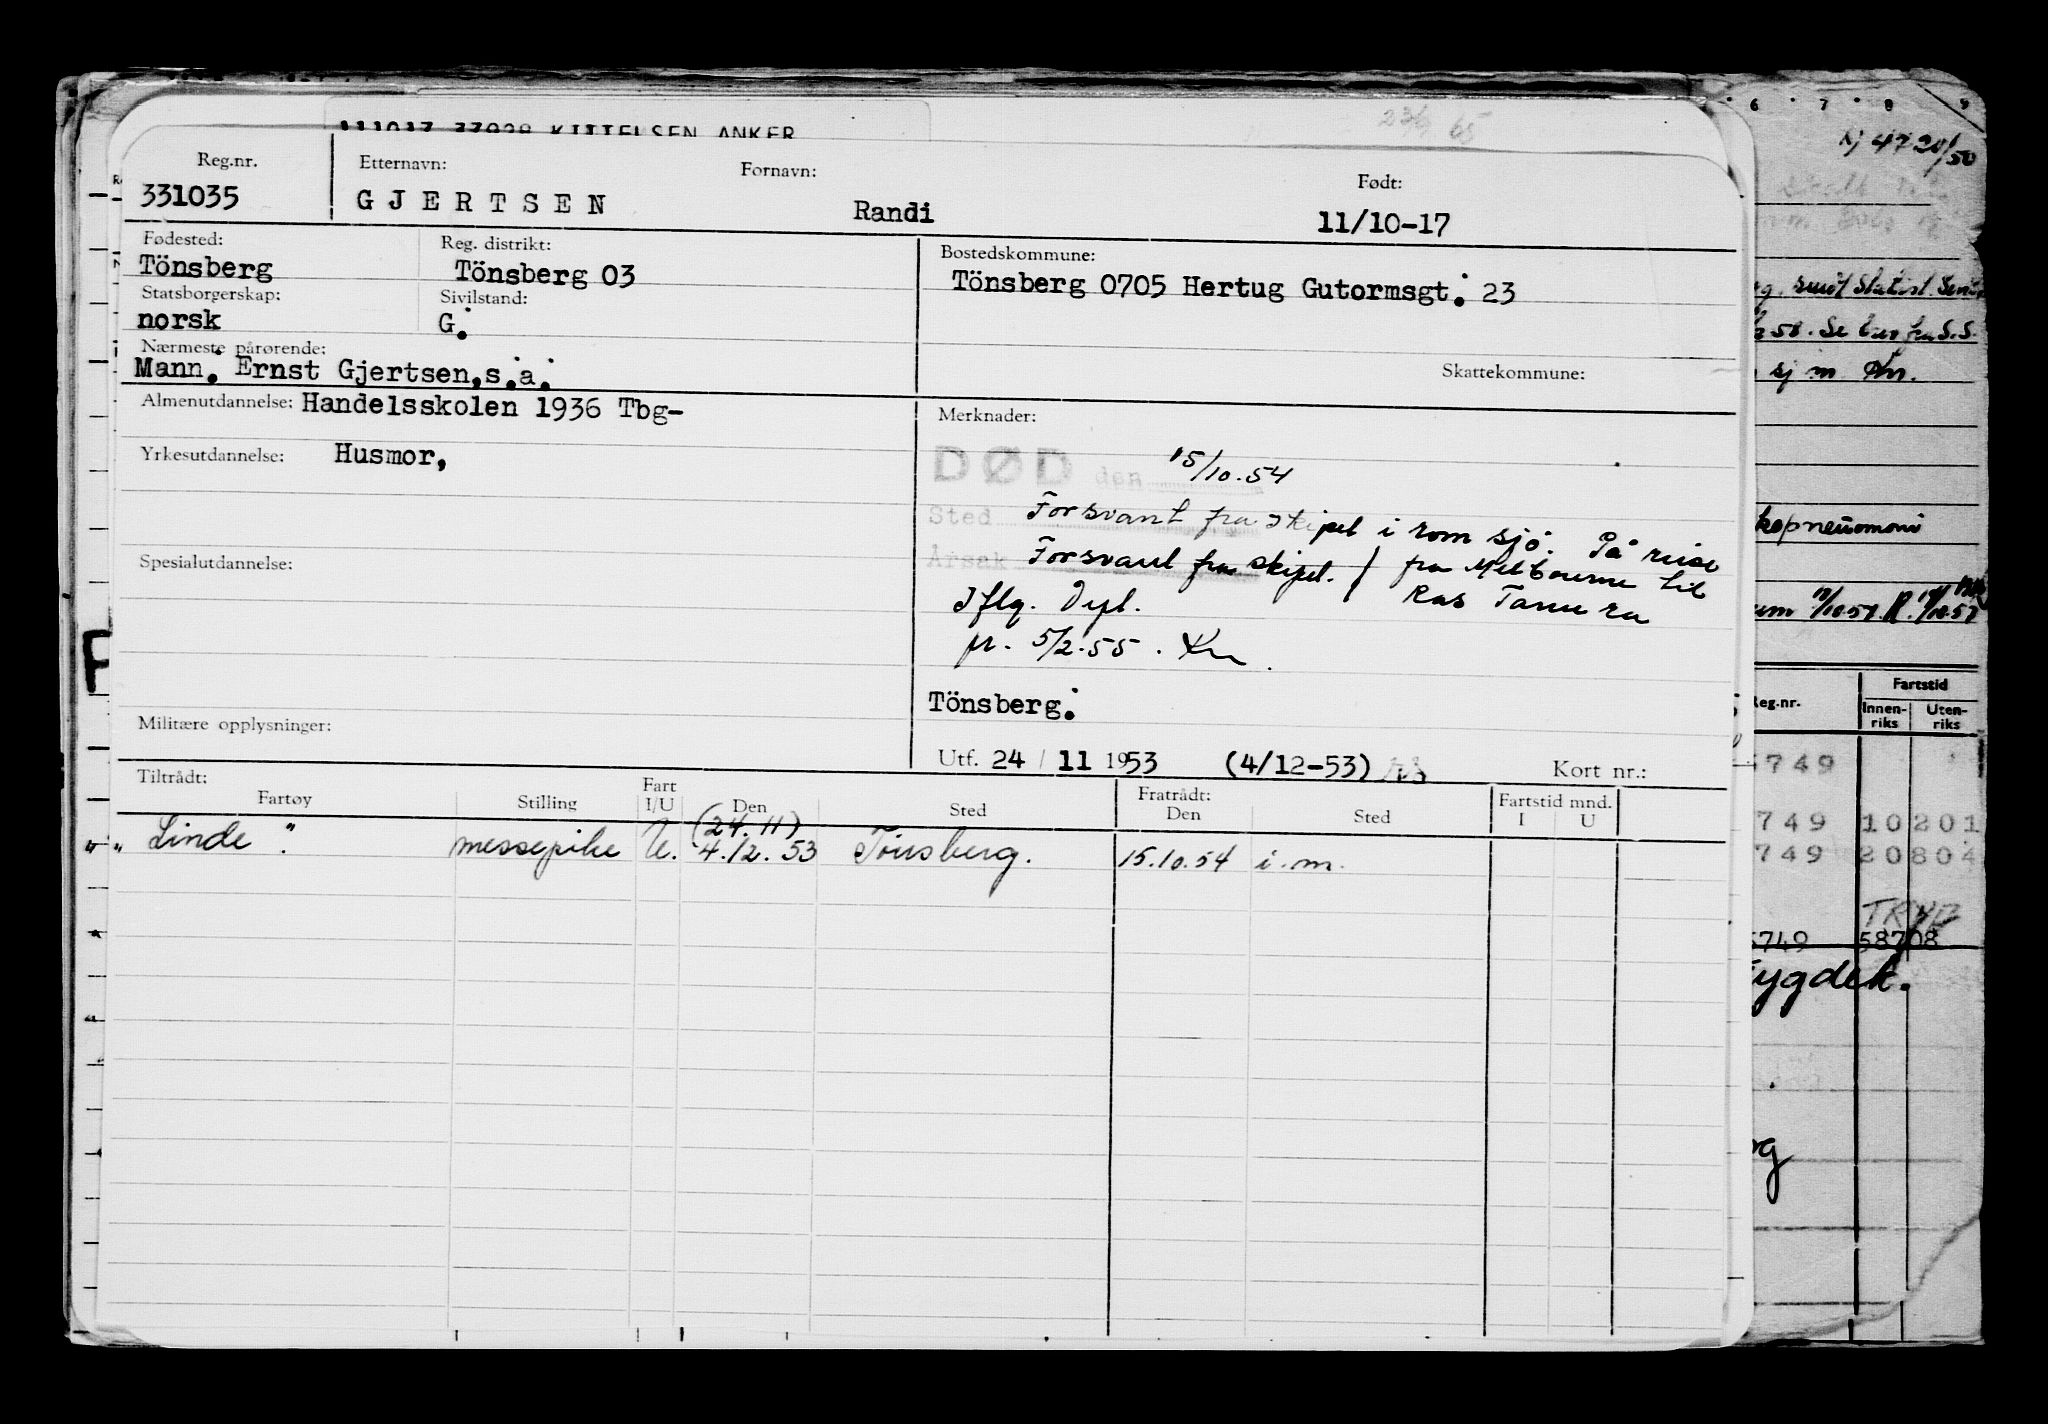 23/9 65
111017 37928 KITTELSEN ANKER
Reg.nr. Etternavn: Fornavn: Født:
331035 GJERTSEN Randi 11/10-17
Fødested: Reg. distrikt: Bostedskommune:
Tönsberg Tönsberg 03 Tönsberg 0705 Hertug Gutormsgt. 23
Statsborgerskap: Sivilstand:
norsk G.
Nærmeste pårørende: Skattekommune:
Mann. Ernst Gjertsen, s.a.
Almenutdannelse: Handelsskolen 1936 Tbg-
Yrkesutdannelse: Husmor,
Spesialutdannelse:
Militære opplysninger:
Merknader:
DØD den 15/10.54
Sted Forsvant fra skipet i rom sjö. På reise
Årsak Forsvant fra skipet. / fra Melbourne til
Iflg. Dypl. Ras Tanura
pr. 5/2.55. Kn.
Tönsberg.
Utf. 24 / 11 1953 (4/12-53) Kort nr.:
Tiltrådt: Fart Fratrådt: Fartstid mnd.
Fartøy Stilling I/U Den Sted Den Sted I U
(24.11)
"Linde". messepike U. 4.12.53 Tönsberg. 15.10.54 i.m.
6 7 8 9
4720/50
58. Se fra S.S.
sj m Kn.
kopneumoni
Reg.nr. Fartstid
Innen-riks Uten-riks
749
749 10201
749 20804
TRYG
5749 58708
Tygdek.